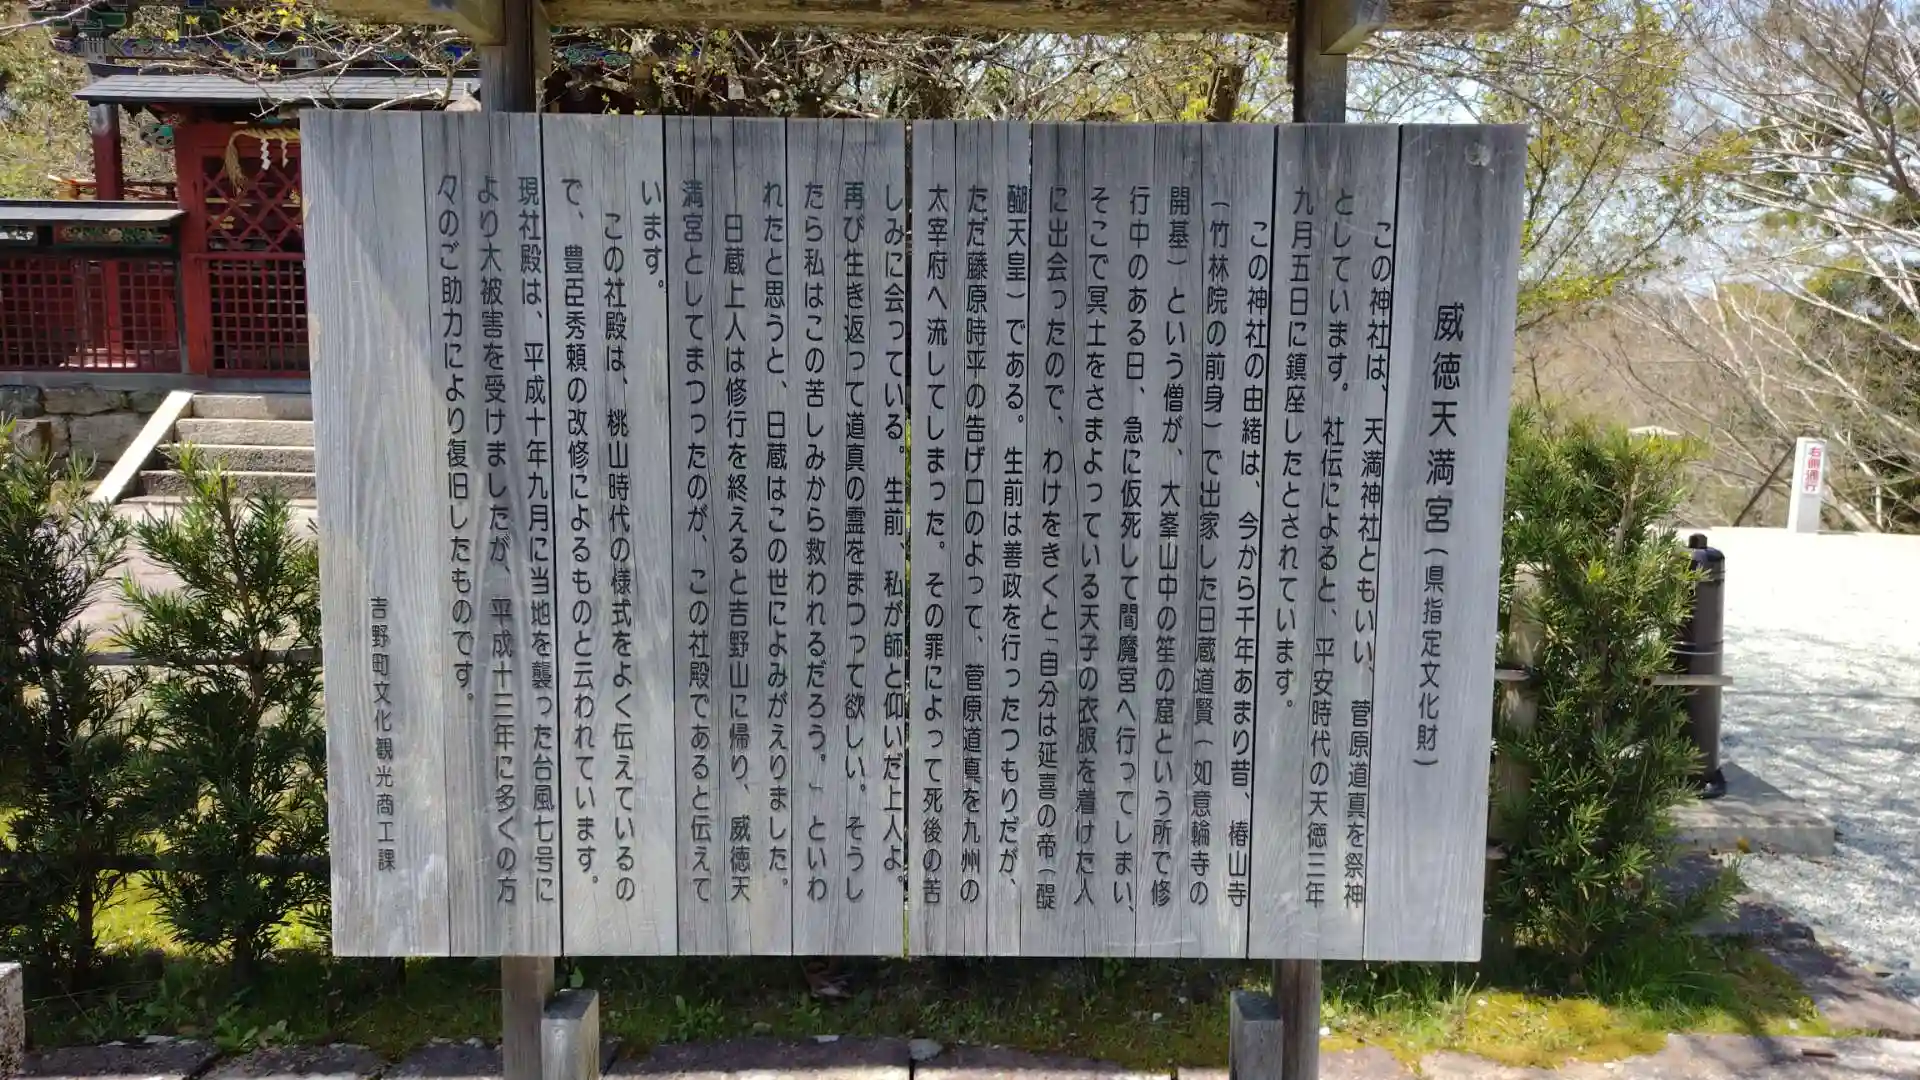 威徳天満宮(県指定文化財)
この神社は、天満神社ともいい、菅原道真を祭神
としています。社伝によると、平安時代の天徳三年
九月五日に鎮座したとされています。
この神社の由緒は、今から千年あまり昔、椿山寺
(竹林院の前身)で出家した日蔵道賢(如意輪寺の
開基)という僧が、大峯山中の笙の窟という所で修
行中のある日、急に仮死して閻魔宮へ行ってしまい、
そこで冥土をさまよっている天子の衣服を着けた人
に出会ったので、わけをきくと「自分は延喜の帝(醍
醐天皇)である。生前は善政を行ったつもりだが、
ただ藤原時平の告げ口のよって、菅原道真を九州の
太宰府へ流してしまった。その罪によって死後の苦
しみに会っている。生前、私が師と仰いだ上人よ。
再び生き返って道真の霊をまつって欲しい。そうし
たら私はこの苦しみから救われるだろう。」といわ
れたと思うと、日蔵はこの世によみがえりました。
日蔵上人は修行を終えると吉野山に帰り、威徳天
満宮としてまつったのが、この社殿であると伝えて
います。
この社殿は、桃山時代の様式をよく伝えているの
で、豊臣秀頼の改修によるものと云われています。
現社殿は、平成十年九月に当地を襲った台風七号に
より大被害を受けましたが、平成十三年に多くの方
々のご助力により復旧したものです。
吉野町文化観光商工課
右側通行